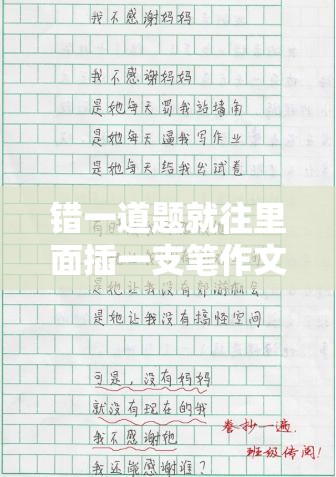 我不感谢妈妈
我不感谢妈妈
是她每天罚我站墙角
是她每天逼我写作业
是她每天给我出试卷
错一道题就往里
面插一支笔作文
是她让我没有搞怪空间
可是，没有妈妈
就没有现在的我
我不感谢她
我还能感谢谁？
卷抄一遍，
班级传阅！